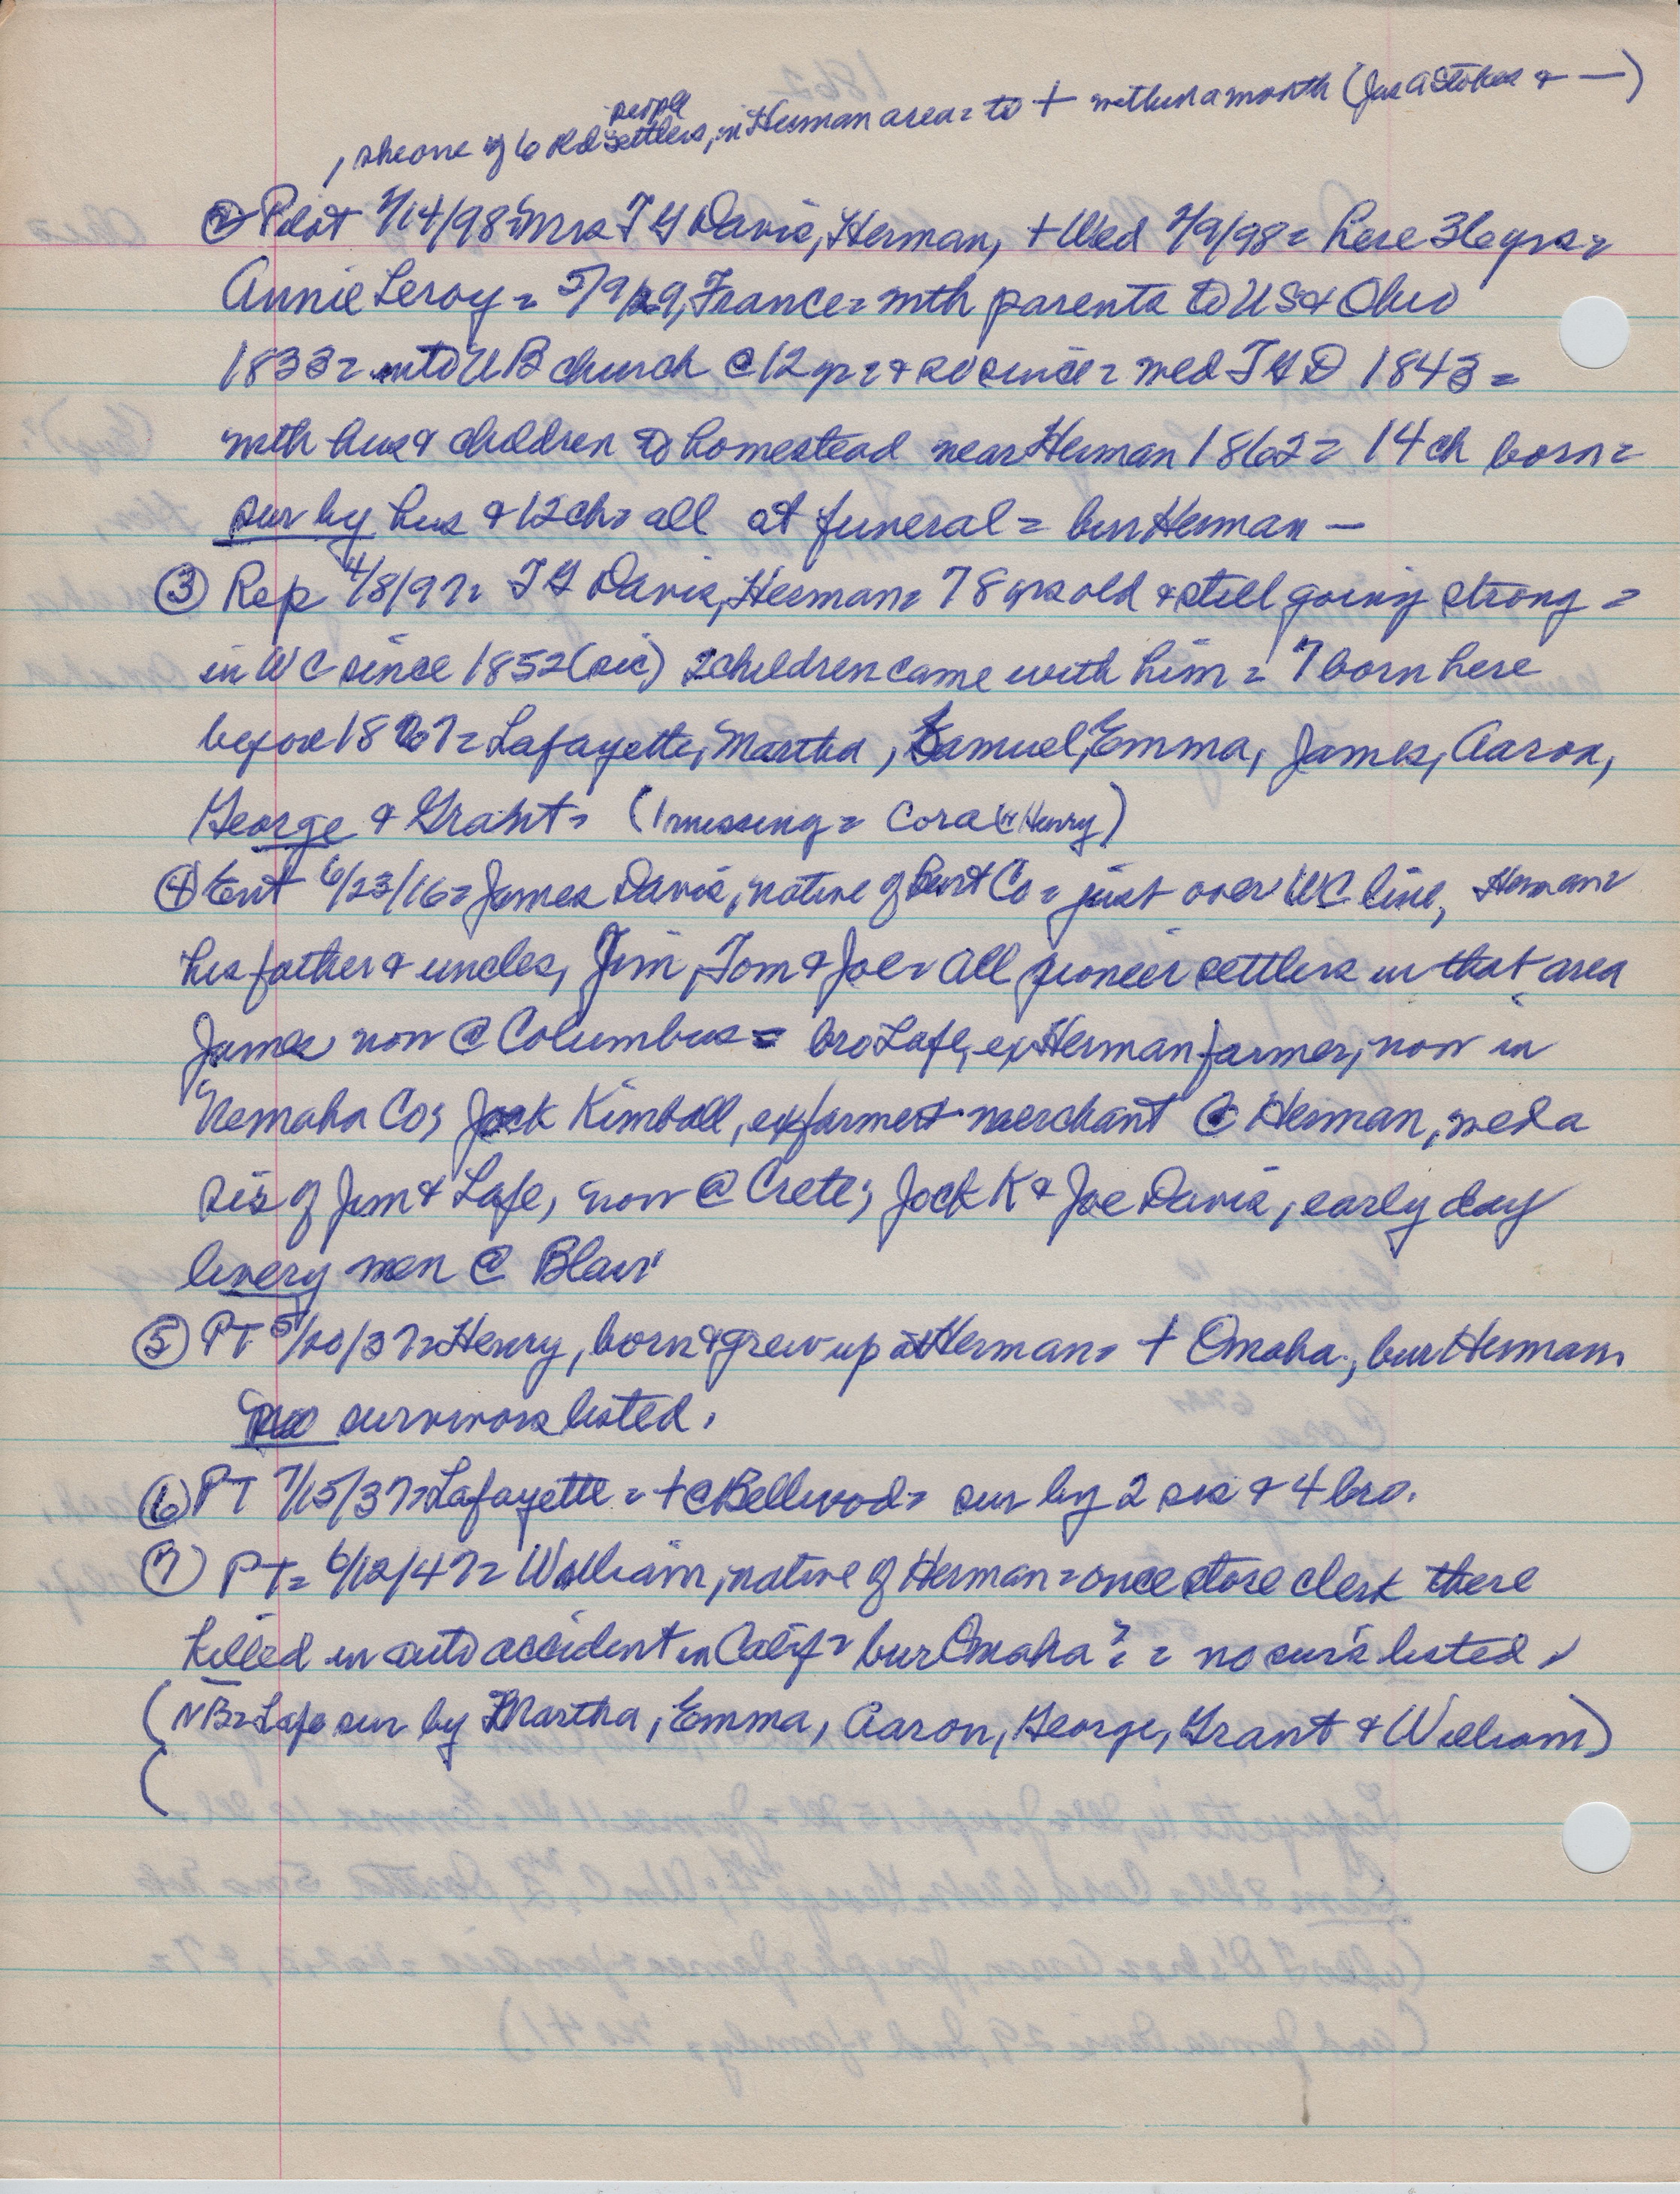 people
, she one of 6 old settlers, in Herman area = to + within a month (Jas A Stokes & —)
② Pilot 2/14/98 = Mrs T G Davis, Herman, + Wed 2/9/98 = here 36 yrs =
Annie Leroy = 5/9/29, France = with parents to US & Ohio
1833 = into UB church @ 12 yr = & so since = med T G D 1843 =
with hus & children to homestead near Herman 1862 = 14 ch born =
sur by hus & 12 ch = all at funeral = bur Herman —
③ Rep 4/8/97 = T G Davis, Herman = 78 yrs old & still going strong =
in WC since 1852 (sic) 2 children came with him = 7 born here
before 1867 = Lafayette, Martha, Samuel, Emma, James, Aaron,
George & Grant = (1 missing = Cora (" Henry)
④ Ent 6/23/16 = James Davis, native of Burt Co = just over WC line, Herman =
his father & uncles, Jim, Tom & Joe = all pioneer settlers in that area
James now @ Columbus = bro Lafe, ex Herman farmer, now in
Nemaha Co; Jack Kimball, ex farmer & merchant @ Herman, med a
sis of Jim & Lafe, now @ Crete; Jack K & Joe Davis, early day
livery men @ Blair
⑤ PT 5/20/37 = Henry, born & grew up at Herman = + Omaha, bur Herman
no survivors listed.
⑥ PT 7/15/37 = Lafayette = + @ Bellwood = sur by 2 sis & 4 bro.
⑦ PT = 6/12/47 = William, native of Herman = once store clerk there
killed in auto accident in Calif = bur Omaha ? = no sur's listed
(NB = Lafe sur by Martha, Emma, Aaron, George, Grant & William)
(